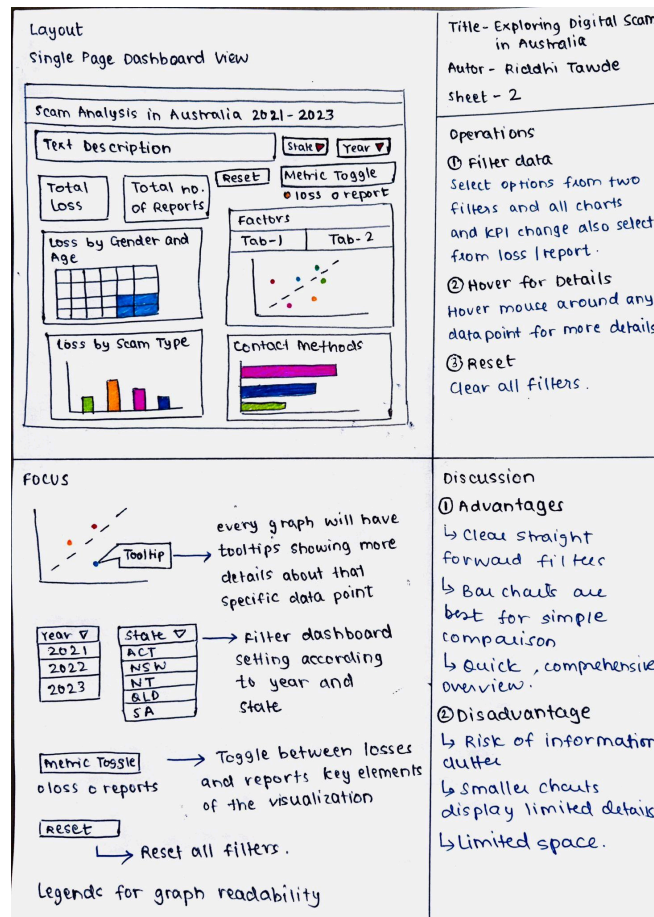 Layout
Single Page Dashboard View
Scam Analysis in Australia 2021-2023
Text Description
State
Year
Reset
Metric Toggle
loss o report
Total
Loss
Total no.
of Reports
Loss by Gender and
Age
Factors
Tab-1
Tab-2
Loss by Scam Type
Contact Methods
Title- Exploring Digital Scam
in Australia
Autor- Riddhi Tawde
Sheet-2
Operations
① Filter data
Select options from two
filters and all charts
and KPI change also select
from loss/report.
② Hover for Details
Hover mouse around any
data point for more details
③ Reset
Clear all filters.
FOCUS
Tooltip
every graph will have
tooltips showing more
details about that
specific data point
Year
2021
2022
2023
State
ACT
NSW
NT
QLD
SA
Filter dashboard
setting according
to year and
state
Metric Toggle
o loss o reports
Toggle between losses
and reports key elements
of the visualization
Reset
Reset all filters.
Legends for graph readability
Discussion
① Advantages
↳ Clear straight
forward filters
↳ Bar charts are
best for simple
comparison
↳ Quick, comprehensive
overview.
② Disadvantage
↳ Risk of information
clutter
↳ Smaller charts
display limited details
↳ Limited space.